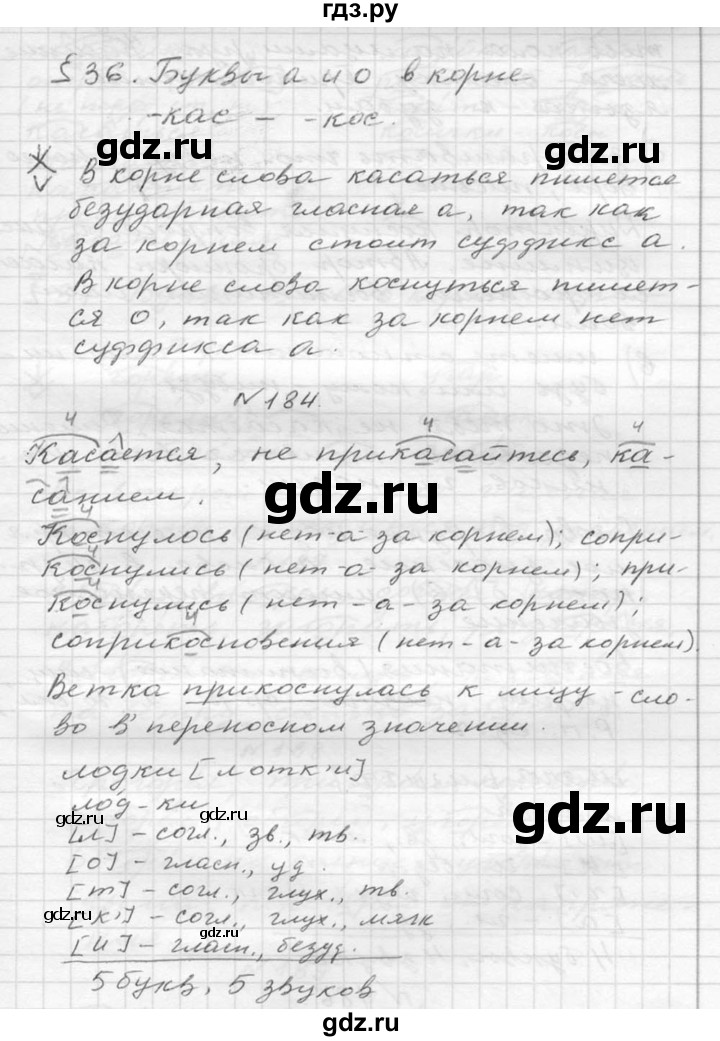 гдз.ру
§ 36. Буквы а и о в корне
-кас – -кос.
gdz.ru gdz.ru
В корне слова касаться пишется
безударная гласная а, так как
за корнем стоит суффикс а.
В корне слова коснуться пишет-
ся о, так как за корнем нет
суффикса а.
№184.
Касается, не прикасайтесь, ка-
санием.
gdz.ru
Коснулось (нет -а- за корнем); сопри-
коснулись (нет -а- за корнем); при-
коснулись (нет -а- за корнем);
соприкосновения (нет -а- за корнем).
Ветка прикоснулась к лицу - сло-
во в переносном значении.
лодки [лотк'и]
лод-ки
gdz.ru
[л] - согл., зв., тв.
[о] - гласн., уд.
[т] - согл., глух., тв.
gdz.ru gdz.ru
[к'] - согл., глух., мягк
[и] - гласн., безуд.
5 букв, 5 звуков
gdz.ru